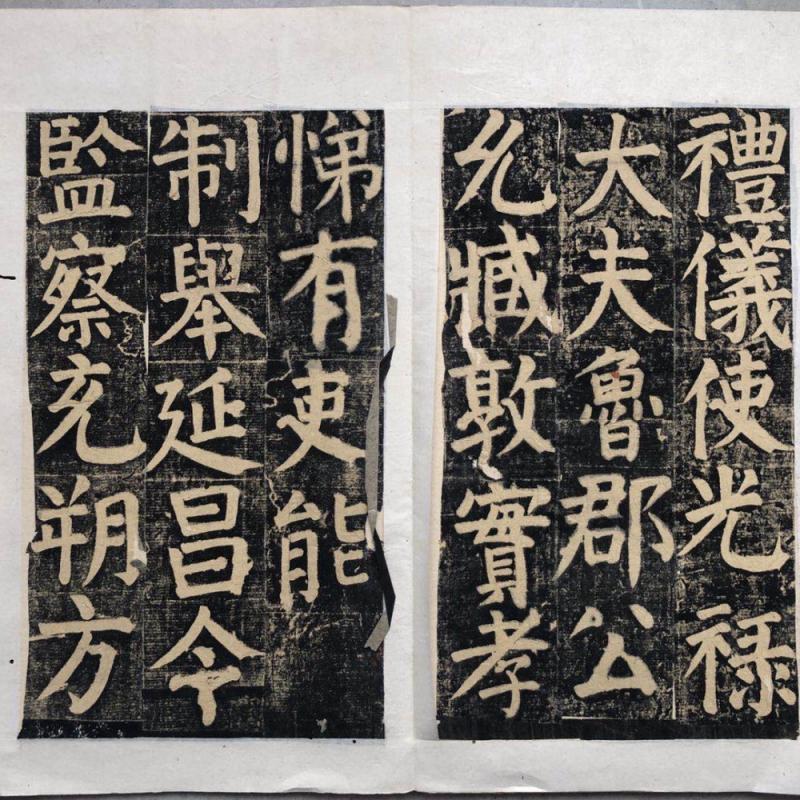 禮儀使光禄
大夫魯郡公
允臧敦實孝
悌有吏能
制舉延昌令
監察充朔方